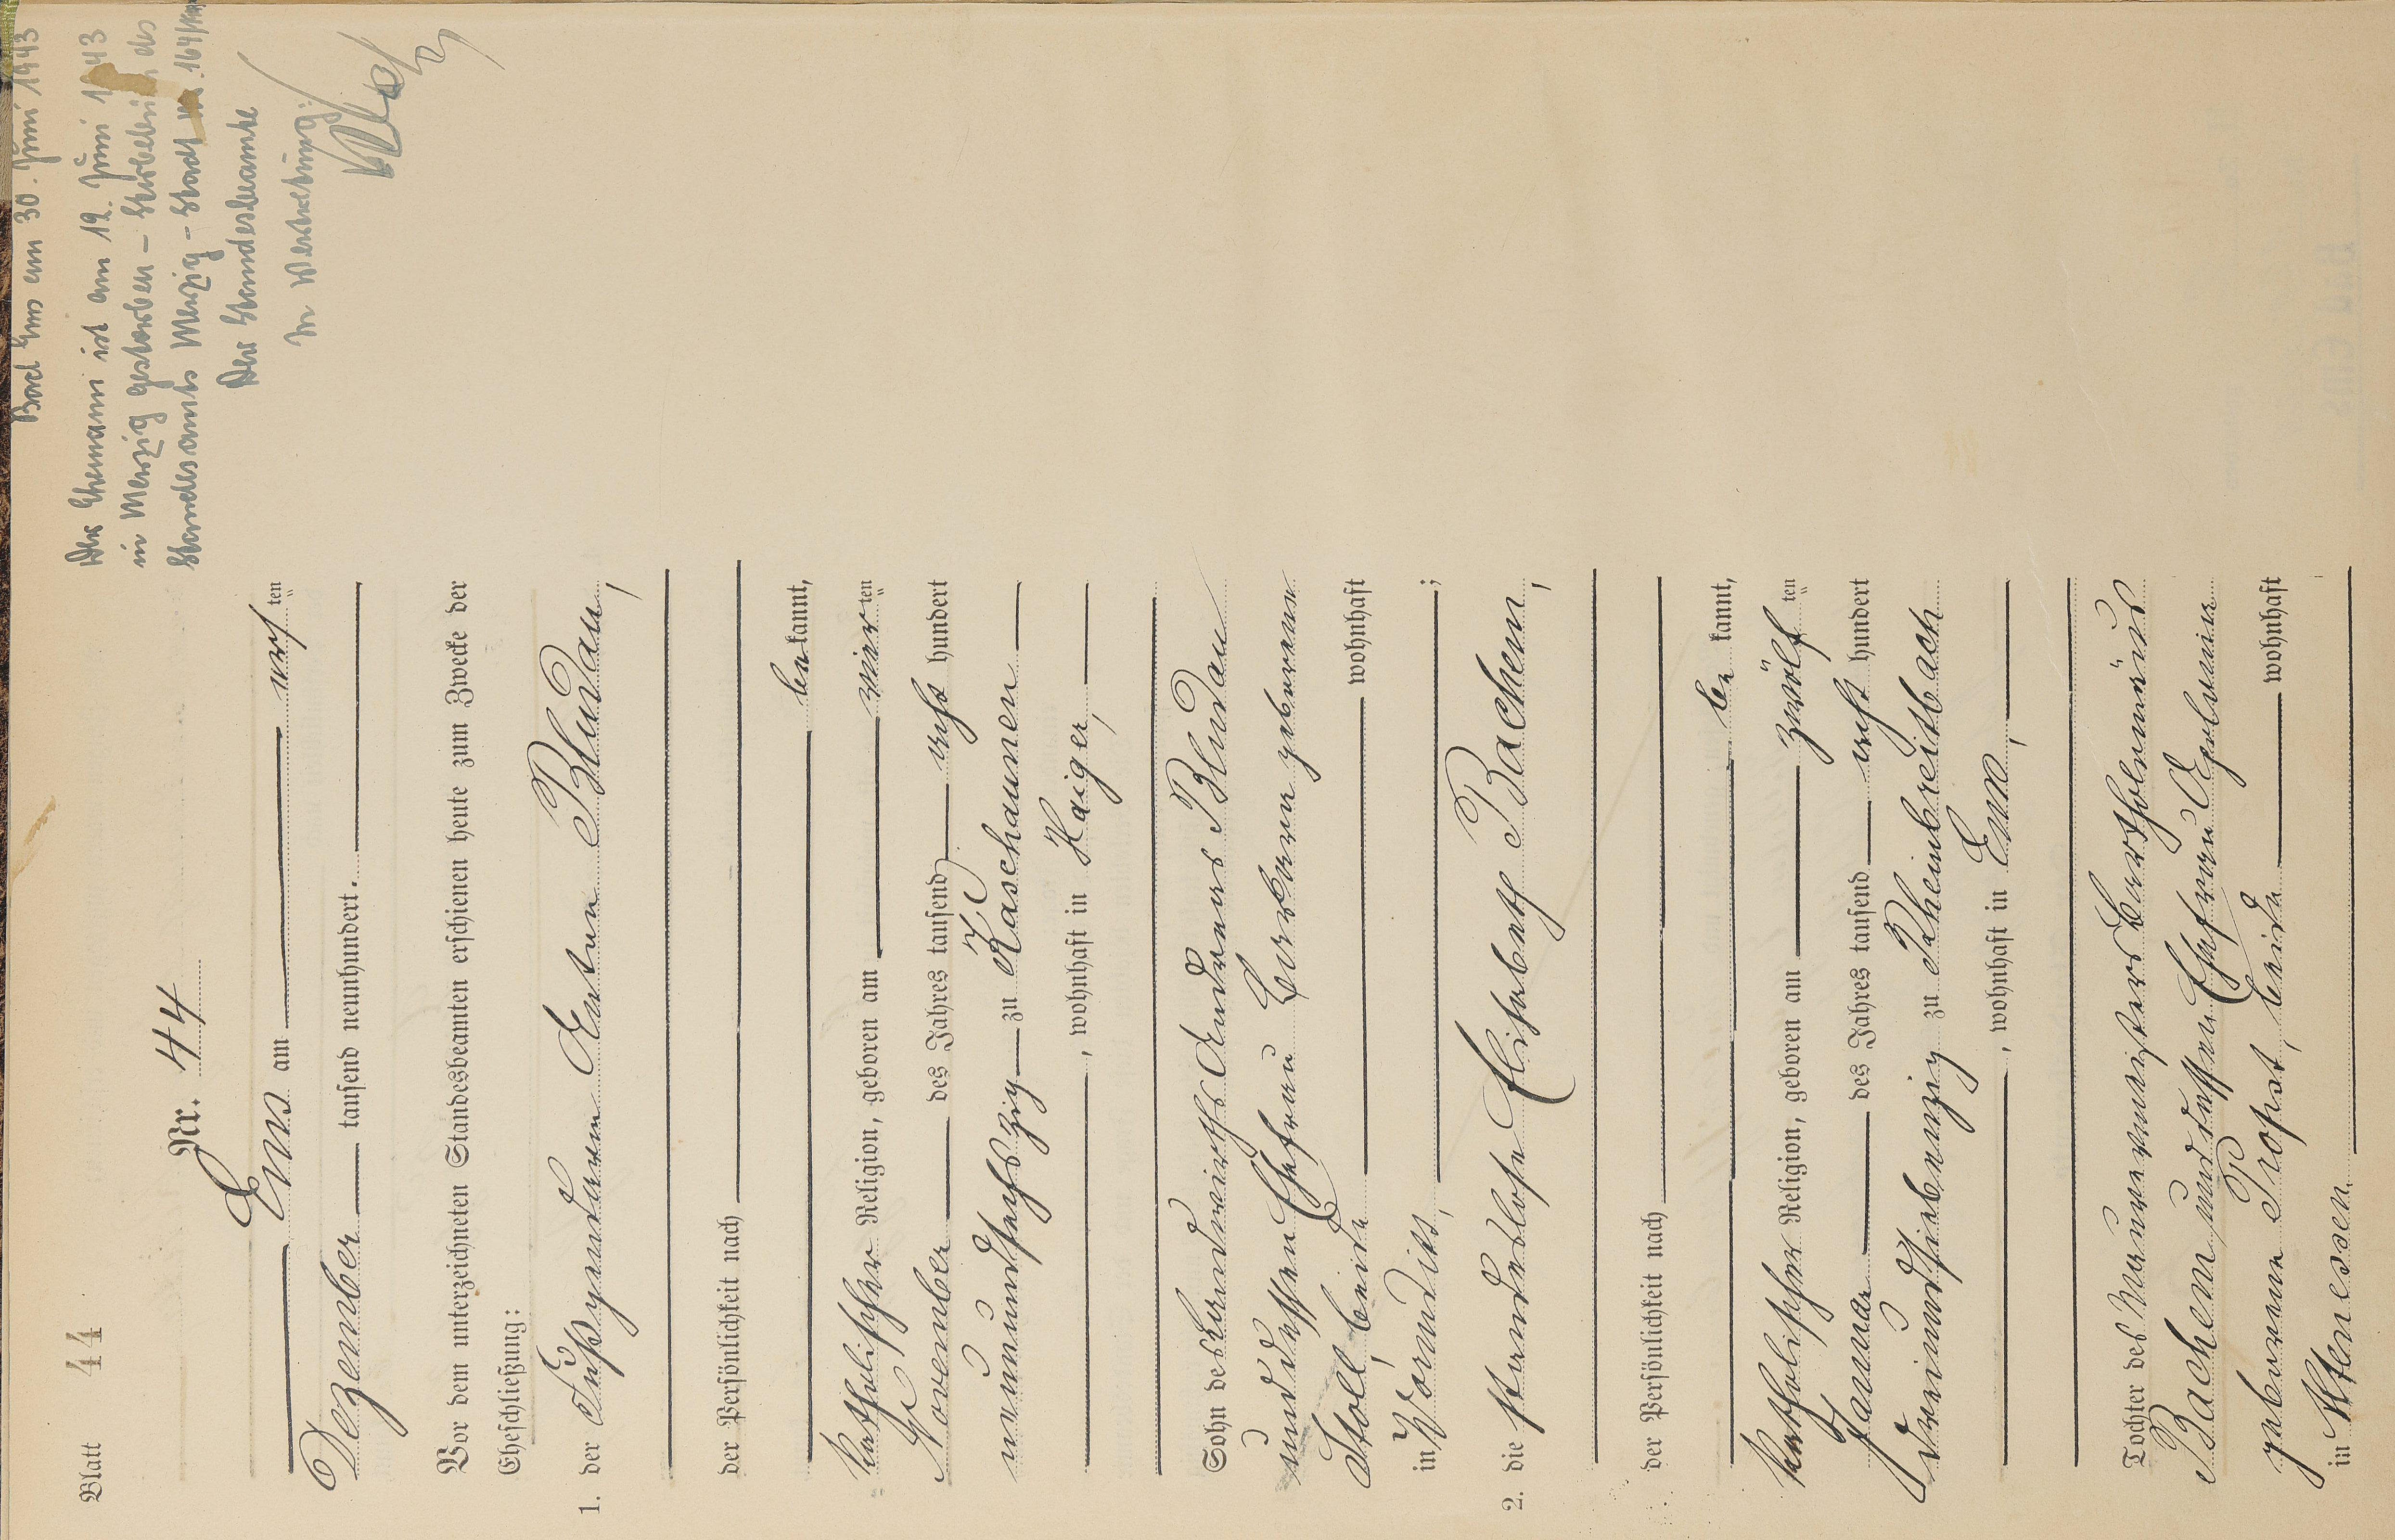 Blatt 44
Nr. 44
Ems am acht ten
Dezember tausend neunhundert.
Vor dem unterzeichneten Standesbeamten erschienen heute zum Zwecke der
Eheschließung:
1. der Fußgendarm Anton Bludau,
der Persönlichkeit nach
be kannt,
katholischer Religion, geboren am vier ten
November des Jahres tausend acht hundert
neunundsechszig zu Kaschaunen
, wohnhaft in Haiger,
Sohn des Landwirths Andreas Bludau
und dessen Ehefrau Barbara geborene
Stoll, beide wohnhaft
in Wormditt, ;
2. die standeslose Elisabeth Bachem,
der Persönlichkeit nach
be kannt,
katholischer Religion, geboren am zwölf ten
Januar des Jahres tausend acht hundert
dreiundsiebenzig zu Rheinbreitbach
, wohnhaft in Ems,
Tochter des Maurermeisters Bartholomäus
Bachem und dessen Ehefrau Apolonia
geborene Probst, beide wohnhaft
in Altenessen
Bad Ems am 30. Juni 1943
Der Ehemann ist am 19. Juni 1943
in Merzig gestorben – Sterbebuch des
Standesamts Merzig-Stadt Nr. 164/
Der Standesbeamte
In Vertretung: